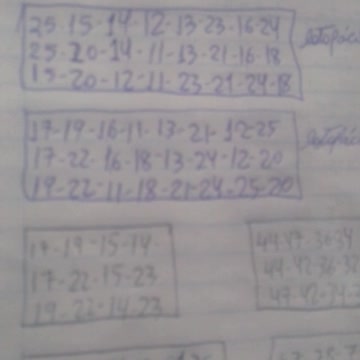 25-15-14-12-13-23-16-24
25-20-14-11-13-21-16-18
15-20-12-11-23-21-24-18
17-19-16-11-13-21-12-25
17-22-16-18-13-24-12-20
19-22-11-18-21-24-25-20
17-19-15-14-
17-22-15-23
19-22-14-23
44-47-36-34
44-42-36-32
47-42-34-